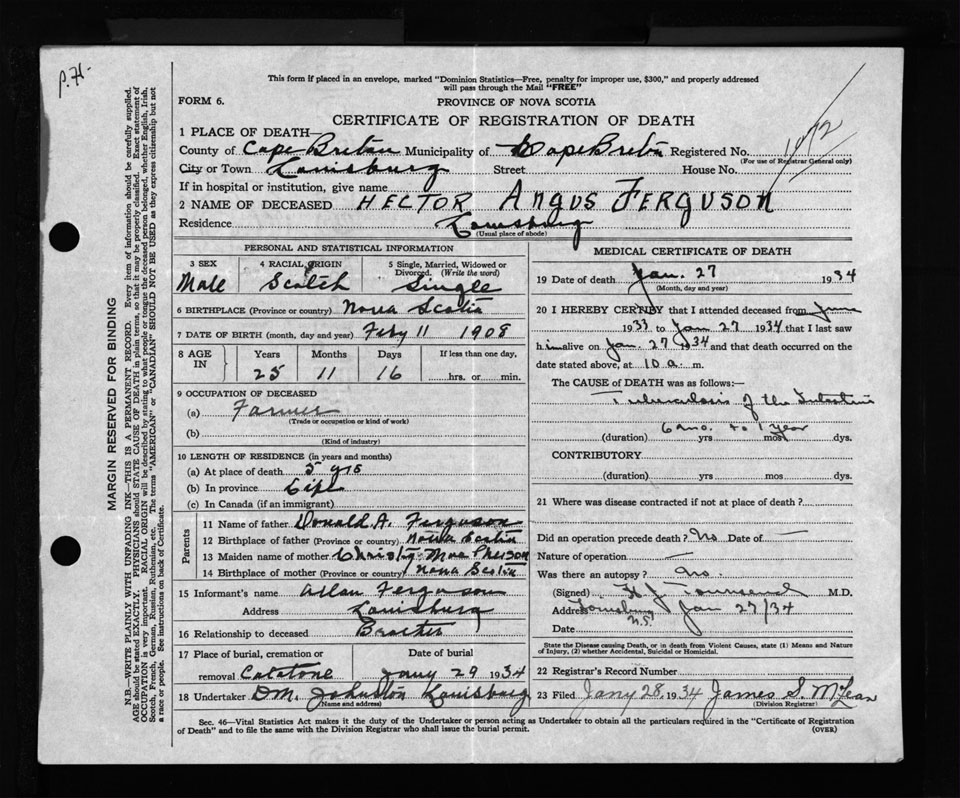 p. 71-
This form if placed in an envelope, marked "Dominion Statistics—Free, penalty for improper use, $300," and properly addressed
will pass through the Mail "FREE"
FORM 6.
PROVINCE OF NOVA SCOTIA
CERTIFICATE OF REGISTRATION OF DEATH
1 PLACE OF DEATH—
County of Cape Breton Municipality of Cape Breton Registered No.
(For use of Registrar General only)
City or Town Louisburg Street House No.
If in hospital or institution, give name
2 NAME OF DECEASED HECTOR ANGUS FERGUSON
Residence Louisburg
(Usual place of abode)
PERSONAL AND STATISTICAL INFORMATION
3 SEX 4 RACIAL ORIGIN 5 Single, Married, Widowed or
Divorced. (Write the word)
Male Scotch Single
6 BIRTHPLACE (Province or country) Nova Scotia
7 DATE OF BIRTH (month, day and year) Feby 11 1908
8 AGE IN Years Months Days If less than one day,
25 11 16 hrs. or min.
9 OCCUPATION OF DECEASED
(a) Farmer
(Trade or occupation or kind of work)
(b)
(Kind of industry)
10 LENGTH OF RESIDENCE (in years and months)
(a) At place of death 5 yrs
(b) In province Life
(c) In Canada (if an immigrant)
Parents
11 Name of father Donald A. Ferguson
12 Birthplace of father (Province or country) Nova Scotia
13 Maiden name of mother Christy Mac Pherson
14 Birthplace of mother (Province or country) Nova Scotia
15 Informant's name Allan Ferguson
Address Louisburg
16 Relationship to deceased Brother
17 Place of burial, cremation or Date of burial
removal Catalone Jany 29 1934
18 Undertaker D.M. Johnston Louisburg
(Name and address)
MEDICAL CERTIFICATE OF DEATH
19 Date of death Jan. 27 1934
(Month, day and year)
20 I HEREBY CERTIFY that I attended deceased from June
1933 to Jan 27 1934 that I last saw
him alive on Jan. 27 1934 and that death occurred on the
date stated above, at 10 a. m.
The CAUSE OF DEATH was as follows:
Tuberculosis of the Intestine
6 mo. to 1 year
(duration) yrs mos dys.
CONTRIBUTORY
(duration) yrs mos dys.
21 Where was disease contracted if not at place of death?
Did an operation precede death? No Date of —
Nature of operation —
Was there an autopsy? No.
(Signed) H J Townsend M.D.
Address Louisburg N.S. Jan 27/34
Date
State the Disease causing Death, or in death from Violent Causes, state (1) Means and Nature
of Injury, (2) whether Accidental, Suicidal or Homicidal.
22 Registrar's Record Number
23 Filed Jany 28, 1934 James S. McLean
(Division Registrar)
Sec. 46—Vital Statistics Act makes it the duty of the Undertaker or person acting as Undertaker to obtain all the particulars required in the "Certificate of Registration
of Death" and to file the same with the Division Registrar who shall issue the burial permit. (OVER)
MARGIN RESERVED FOR BINDING
N.B.—WRITE PLAINLY WITH UNFADING INK—THIS IS A PERMANENT RECORD. Every item of information should be carefully supplied.
AGE should be stated EXACTLY. PHYSICIANS should STATE CAUSE OF DEATH in plain terms, so that it may be properly classified. Exact statement of
OCCUPATION is very important. RACIAL ORIGIN will be described by stating to what people or tongue the deceased person belonged, whether English, Irish,
Scotch, French, German, Russian, Ruthenian, etc. The terms "AMERICAN" or "CANADIAN" SHOULD NOT BE USED as they express citizenship but not
a race or people. See instructions on back of Certificate.